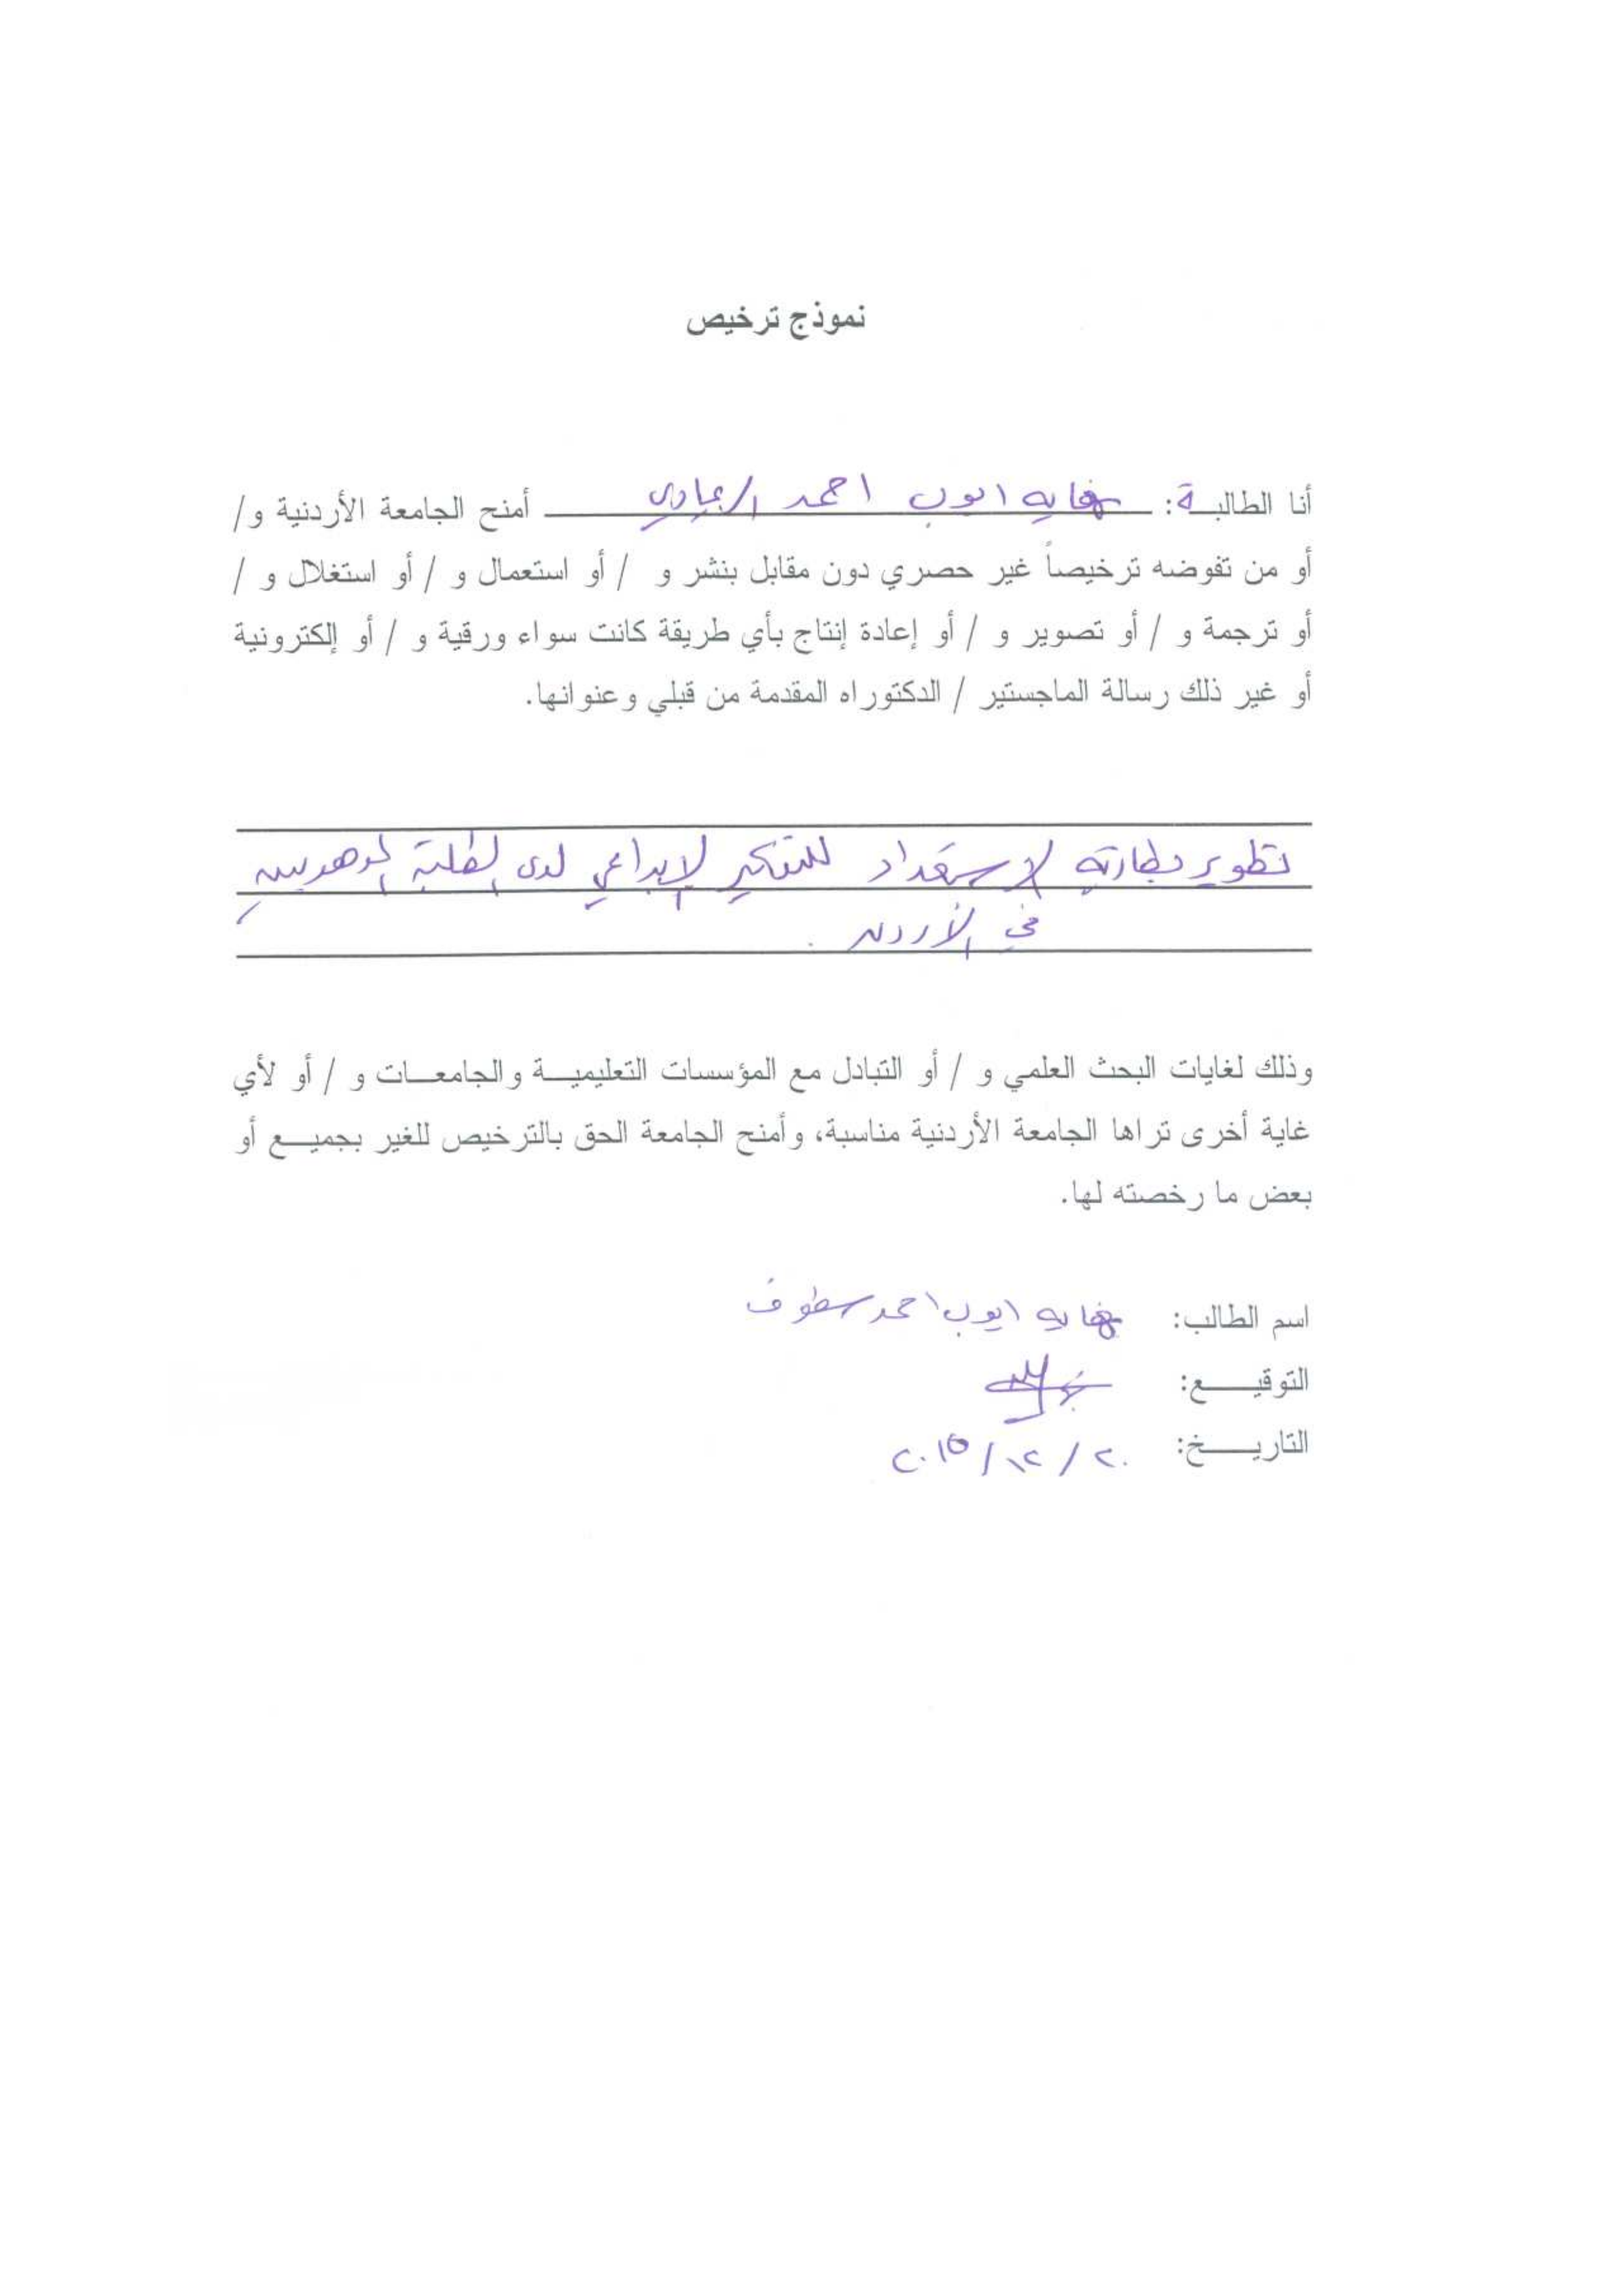 نموذج ترخيص
أنا الطالبة: نهايه ايوب احمد أمنح الجامعة الأردنية و/
أو من تفوضه ترخيصاً غير حصري دون مقابل بنشر و / أو استعمال و / أو استغلال و /
أو ترجمة و / أو تصوير و / أو إعادة إنتاج بأي طريقة كانت سواء ورقية و / أو إلكترونية
أو غير ذلك رسالة الماجستير / الدكتوراه المقدمة من قبلي وعنوانها.
تطوير بطارية الاستعداد للتفكير الابداعي لدى الطلبة الموهوبين
في الأردن .
وذلك لغايات البحث العلمي و / أو التبادل مع المؤسسات التعليمية والجامعات و / أو لأي
غاية أخرى تراها الجامعة الأردنية مناسبة، وأمنح الجامعة الحق بالترخيص للغير بجميع أو
بعض ما رخصته لها.
اسم الطالب: نهايه ايوب احمد
التوقيع:
التاريخ: ٢٠ / ١٢ / ٢٠١٥